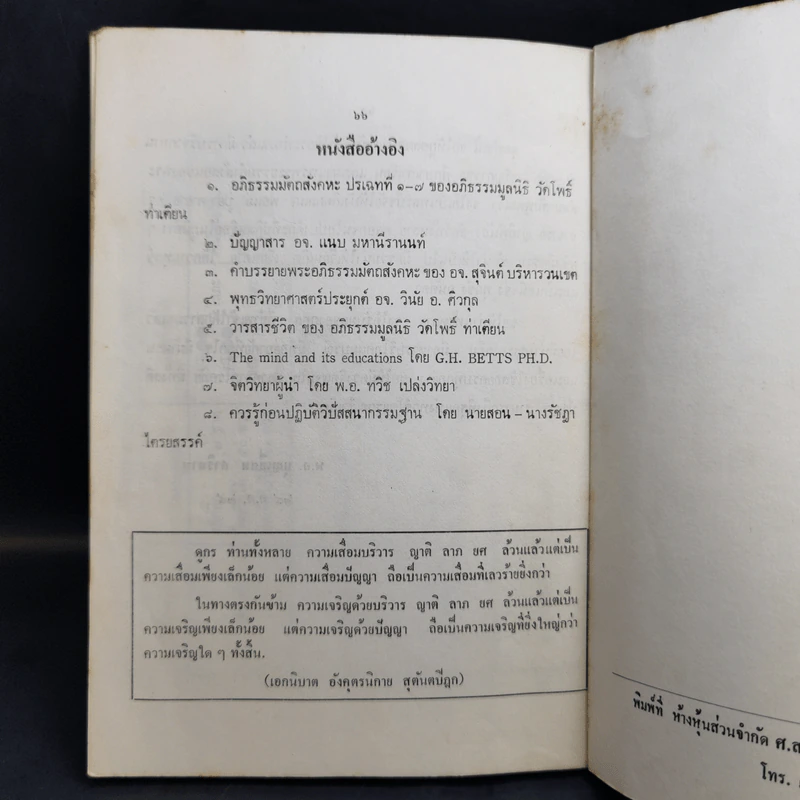 ๖๖
หนังสืออ้างอิง
๑. อภิธรรมมัตถสังคหะ ปรเฉทที่ ๑–๗ ของอภิธรรมมูลนิธิ วัดโพธิ์
ท่าเตียน
๒. ปัญญาสาร อจ. แนบ มหานีรานนท์
๓. คำบรรยายพระอภิธรรมมัตถสังคหะ ของ อจ. สุจินต์ บริหารวนเขต
๔. พุทธวิทยาศาสตร์ประยุกต์ อจ. วินัย อ. ศิวกุล
๕. วารสารชีวิต ของ อภิธรรมมูลนิธิ วัดโพธิ์ ท่าเตียน
๖. The mind and its educations โดย G.H. BETTS PH.D.
๗. จิตวิทยาผู้นำ โดย พ.อ. ทวิช เปล่งวิทยา
๘. ควรรู้ก่อนปฏิบัติวิปัสสนากรรมฐาน โดย นายสอน – นางรัชฎา
ไตรยสรรค์
ดูกร ท่านทั้งหลาย ความเสื่อมบริวาร ญาติ ลาภ ยศ ล้วนแล้วแต่เป็น
ความเสื่อมเพียงเล็กน้อย แต่ความเสื่อมปัญญา ถือเป็นความเสื่อมที่เลวร้ายยิ่งกว่า
ในทางตรงกันข้าม ความเจริญด้วยบริวาร ญาติ ลาภ ยศ ล้วนแล้วแต่เป็น
ความเจริญเพียงเล็กน้อย แต่ความเจริญด้วยปัญญา ถือเป็นความเจริญที่ยิ่งใหญ่กว่า
ความเจริญใด ๆ ทั้งสิ้น.
(เอกนิบาต อังคุตรนิกาย สุตันตปิฎก)
พิมพ์ที่ ห้างหุ้นส่วนจำกัด ศ.ส
โทร.